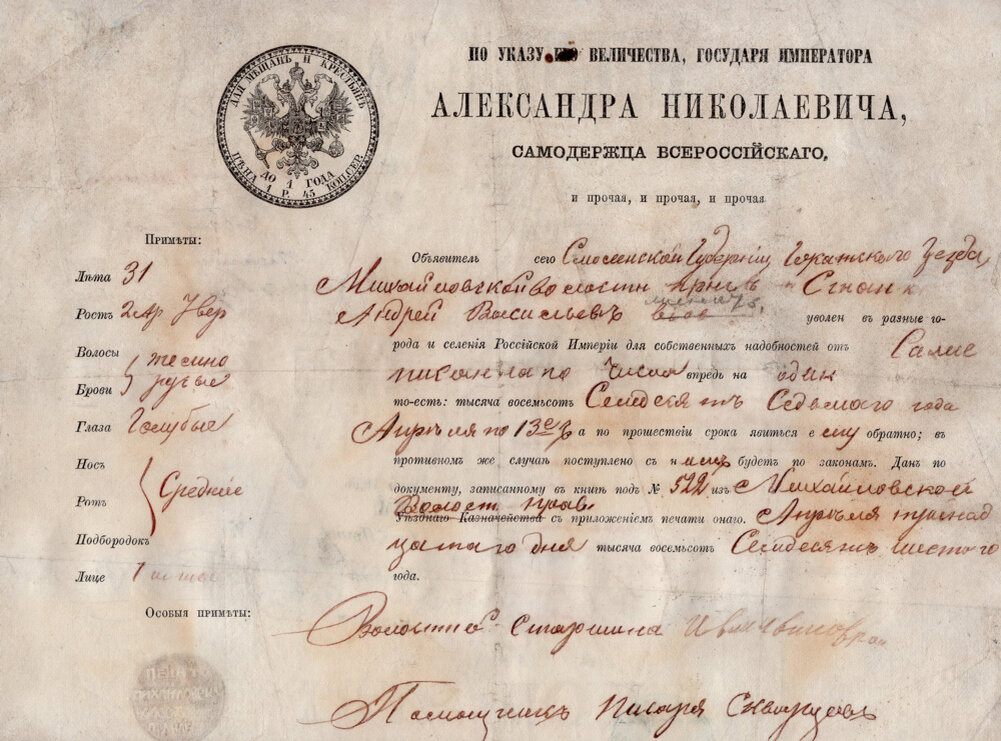 ДЛЯ МѢЩАНЪ И КРЕСТЬЯНЪ
ДО 1 ГОДА
ЦѢНА 1 Р. 45 КОП. СЕР.
ПО УКАЗУ ЕГО ВЕЛИЧЕСТВА, ГОСУДАРЯ ИМПЕРАТОРА
АЛЕКСАНДРА НИКОЛАЕВИЧА,
САМОДЕРЖЦА ВСЕРОССІЙСКАГО,
и прочая, и прочая, и прочая
Примѣты:
Лѣта 31
Ростъ 2 ар
Волосы темно
Брови русые
Глаза Голубые
Носъ
Ротъ Средніе
Подбородокъ
Лице
Особыя примѣты:
Объявитель сего Смоленской Губерніи Гжатского Уезда
Михайловской волости
Андрей Васильевъ уволенъ въ разные го-
рода и селенія Россійской Имперіи для собственныхъ надобностей отъ
числа впредь на один
то-есть: тысяча восемьсотъ Семдесятъ Седьмого года
Апреля по 13е а по прошествіи срока явиться ему обратно; въ
противномъ же случаѣ поступлено съ нимъ будетъ по законамъ. Данъ по
документу, записанному въ книгѣ подъ № 522 изъ Михайловской
Волост прав
Уѣзднаго Казначейства съ приложеніемъ печати онаго. Апреля тринад
цатаго дня тысяча восемьсотъ Семдесятъ шестого
года.
Волостной Старшина
Помощникъ Писаря